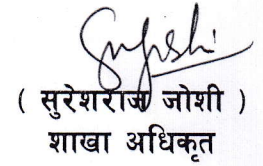 ( सुरेशराज जोशी )
शाखा अधिकृत